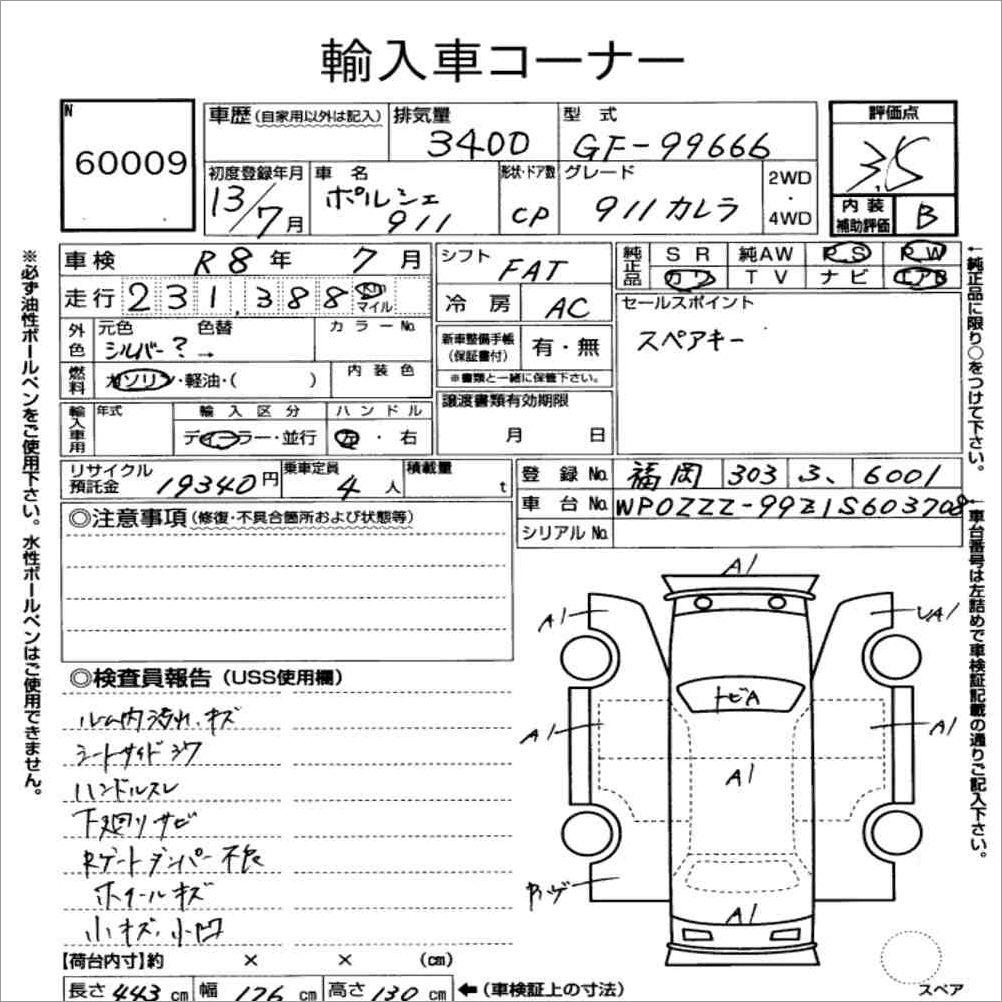 輸入車コーナー
N 60009
車歴(自家用以外は記入) 排気量 3400 型式 GF-99666 評価点 3.5
初度登録年月 13/7月 車名 ポルシェ 911 形状・ドア数 CP グレード 911カレラ 2WD ・ 4WD 内装補助評価 B
車検 R8年 7月 シフト FAT 純正品 SR 純AW PS PW
走行 231,388 Km マイル 冷房 AC カワ TV ナビ エアB
外色 元色 シルバー? → 色替 カラーNo. 新車整備手帳(保証書付) 有・無 ※書類と一緒に保管下さい。 セールスポイント
スペアキー
燃料 ガソリン・軽油・( ) 内装色
譲渡書類有効期限 月 日
輸入車用 年式 輸入区分 ディーラー・並行 ハンドル 左・右
リサイクル預託金 19340円 乗車定員 4人 積載量 t 登録No. 福岡 303 ろ 6001
車台No. WP0ZZZ-99Z1S603708
シリアルNo.
◎注意事項(修復・不具合箇所および状態等)
◎検査員報告(USS使用欄)
ルーム内汚れ、キズ
シートサイドシワ
ハンドルスレ
下廻りサビ
Rゲートダンパー不良
ホイールキズ
小キズ、小凹
【荷台内寸】約 × × (cm)
長さ 443 cm 幅 176 cm 高さ 130 cm ←(車検証上の寸法)
※必ず油性ボールペンをご使用下さい。水性ボールペンはご使用できません。
←純正品に限り○をつけて下さい。
←車台番号は左詰めで車検証記載の通りご記入下さい。
A1
A1
A1
トビA
A1
A1
A1
ハゲ
A1
スペア